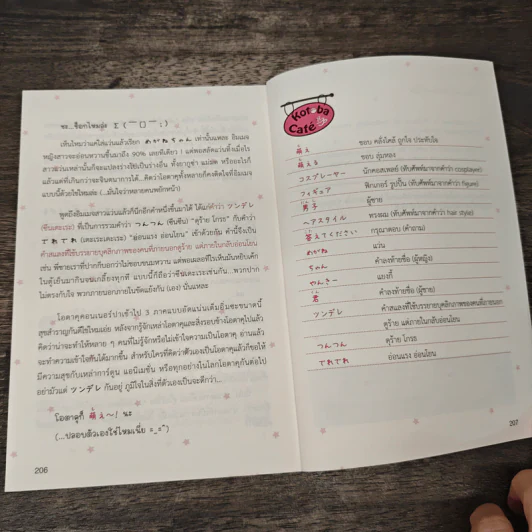 ซะ...ช็อกไหมล่ะ Σ(￣□￣;
เห็นไหมว่าแค่ใส่แว่นแล้วเรียก めがねちゃん เท่านั้นแหละ อิมเมจ
หญิงสาวจะอ่อนหวานขึ้นมาถึง 90% เลยทีเดียว ! แต่พอสลัดแว่นทิ้งเมื่อไร
แล้วแต่ที่เกินกว่าจะจินตนาการได้ คิดว่าโอตาคุทั้งหลายก็คงติดใจที่อิมเมจ
แบบนี้ด้วยใช่ไหมล่ะ (...มันใจว่าหลายคนพยักหน้า)
พูดถึงอิมเมจสาวแว่นแล้วก็นึกอีกคำหนึ่งขึ้นมาได้ ได้แก่คำว่า ツンデレ
(ซึนเดะเระ) ที่เป็นการรวมคำว่า つんつん (ซึนซึน) "ดุร้าย โกรธ" กับคำว่า
でれでれ (เดะเระเดะเระ) "อ่อนแรง อ่อนโยน" เข้าด้วยกัน คำนี้จึงเป็น
คำสแลงที่ใช้บรรยายบุคลิกภาพของคนที่ภายนอกดุร้าย แต่ภายในกลับอ่อนโยน
เช่น พี่ชายเราที่ปากก็บอกว่าไม่ชอบขนมหวาน แต่พอเผลอทีไรเห็นมันหยิบเค้ก
ในตู้เย็นมากินจนเกลี้ยงทุกที แบบนี้ก็ถือว่าซึนเดะเระเช่นกัน...พวกปาก
ไม่ตรงกับใจ พวกภายนอกภายในขัดแย้งกัน (เอง) นั่นแหละ
โอตาคุคอนเนอร์ปาเข้าไป 3 ภาคแบบอัดแน่นเต็มอิ่มซะขนาดนี้
สุขสำราญกันดีใช่ไหมเอ่ย หลังจากรู้จักเหล่าโอตาคุและสิ่งรอบข้างโอตาคุไปแล้ว
คิดว่าน่าจะทำให้หลาย ๆ คนที่ไม่รู้จักหรือไม่เข้าใจความเป็นโอตาคุ อ่านแล้ว
จะทำความเข้าใจกันได้มากขึ้น สำหรับใครที่คิดว่าตัวเองเป็นโอตาคุแล้วก็ขอให้
มีความสุขกับเหล่าการ์ตูน แอนิเมชั่น หรือทุกอย่างในโลกโอตาคุกันต่อไป
อย่ามัวแต่ ツンデレ กันอยู่ ภูมิใจในสิ่งที่ตัวเองเป็นจะดีกว่า...
โอตาคุก็ 萌え〜! นะ
(...ปลอบตัวเองใช่ไหมเนี่ย =_=")
206
Kotoba
Café
萌え ชอบ คลั่งไคล้ ถูกใจ ประทับใจ
萌える ชอบ ลุ่มหลง
コスプレーヤー นักคอสเพลย์ (ทับศัพท์มาจากคำว่า cosplayer)
フィギュア ฟิกเกอร์ รูปปั้น (ทับศัพท์มาจากคำว่า figure)
男子 ผู้ชาย
ヘアスタイル ทรงผม (ทับศัพท์มาจากคำว่า hair style)
答えてください กรุณาตอบ (คำถาม)
めがね แว่น
ちゃん คำลงท้ายชื่อ (ผู้หญิง)
やんきー แยงกี้
君 คำลงท้ายชื่อ (ผู้ชาย)
ツンデレ คำสแลงที่ใช้บรรยายบุคลิกภาพของคนที่ภายนอก
ดุร้าย แต่ภายในกลับอ่อนโยน
つんつん ดุร้าย โกรธ
でれでれ อ่อนแรง อ่อนโยน
207